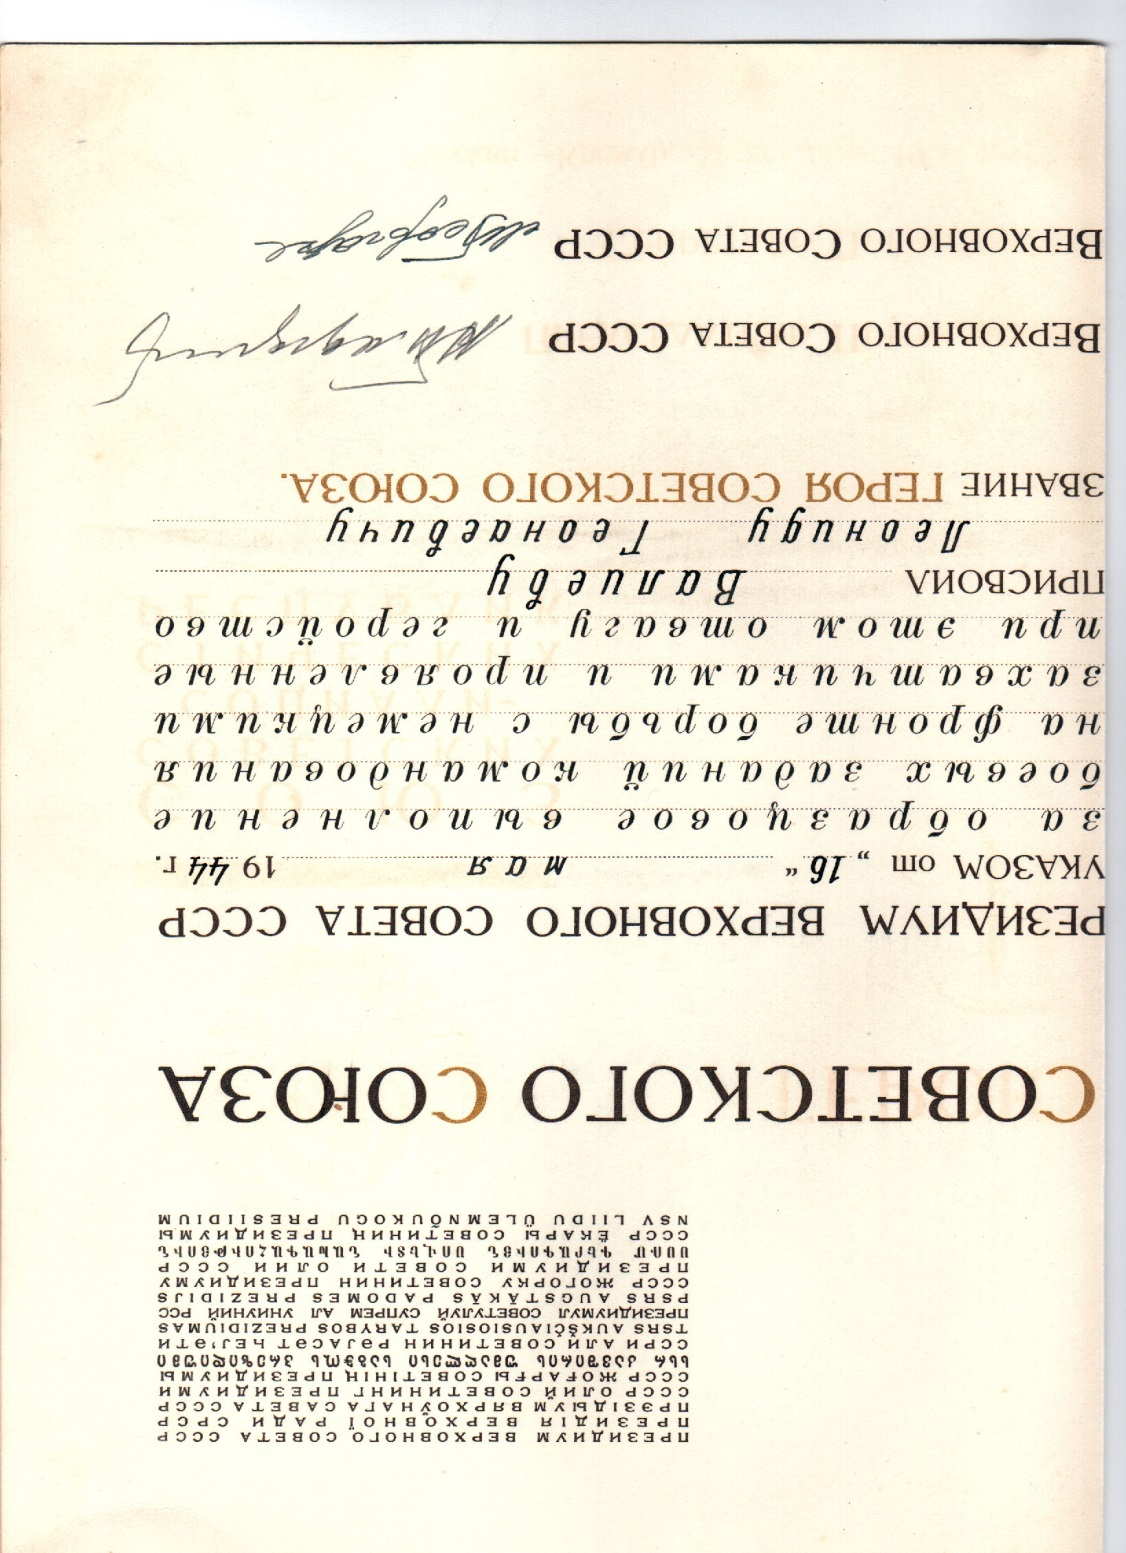 ПРЕЗИДИУМ ВЕРХОВНОГО СОВЕТА СССР
ПРЕЗИДІЯ ВЕРХОВНОЇ РАДИ СРСР
ПРЭЗІДЫУМ ВЯРХОЎНАГА САВЕТА СССР
СССР ОЛИЙ СОВЕТИНИНГ ПРЕЗИДИУМИ
СССР ЖОҒАРҒЫ СОВЕТІНІҢ ПРЕЗИДИУМЫ
სსრ კავშირის უმაღლესი საბჭოს პრეზიდიუმი
ССРИ АЛИ СОВЕТИНИН РӘЈАСӘТ ҺЕЈ'ӘТИ
TSRS AUKŠČIAUSIOSIOS TARYBOS PREZIDIUMAS
ПРЕЗИДИУМУЛ СОВЕТУЛУЙ СУПРЕМ АЛ УНИУНИЙ РСС
PSRS AUGSTĀKĀS PADOMES PREZIDIJS
СССР ЖОГОРКУ СОВЕТИНИН ПРЕЗИДИУМУ
ПРЕЗИДИУМИ СОВЕТИ ОЛИИ СССР
ՍՍՌՄ ԳԵՐԱԳՈՒՅՆ ՍՈՎԵՏԻ ՆԱԽԱԳԱՀՈՒԹՅՈՒՆԸ
СССР ЁКАРЫ СОВЕТИНИҢ ПРЕЗИДИУМЫ
NSV LIIDU ÜLEMNÕUKOGU PRESIIDIUM
СОВЕТСКОГО СОЮЗА
РЕЗИДИУМ ВЕРХОВНОГО СОВЕТА СССР
УКАЗОМ от „16“ мая 1944 г.
за образцовое выполнение
боевых заданий командования
на фронте борьбы с немецкими
захватчиками и проявленные
при этом отвагу и геройство
ПРИСВОИЛ Валиеву
Леониду Геонаевичу
ЗВАНИЕ ГЕРОЯ СОВЕТСКОГО СОЮЗА.
ВЕРХОВНОГО СОВЕТА СССР
ВЕРХОВНОГО СОВЕТА СССР